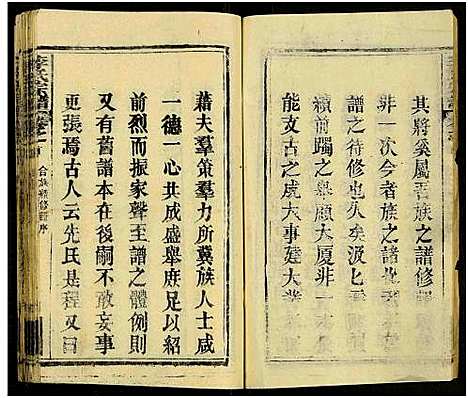 其將奚屬吾族之譜修
非一次今者族之譜
譜之待修也久矣汲匕
續前躅之舉顧大厦非一
能支古之成大事建大業
藉夫羣策羣力所冀族人士咸
一德一心共成盛舉庶足以紹
前烈而振家聲至譜之體例則
又有舊譜本在後嗣不敢妄事
更張焉古人云先民是程又曰
李氏宗譜
合族續修譜序